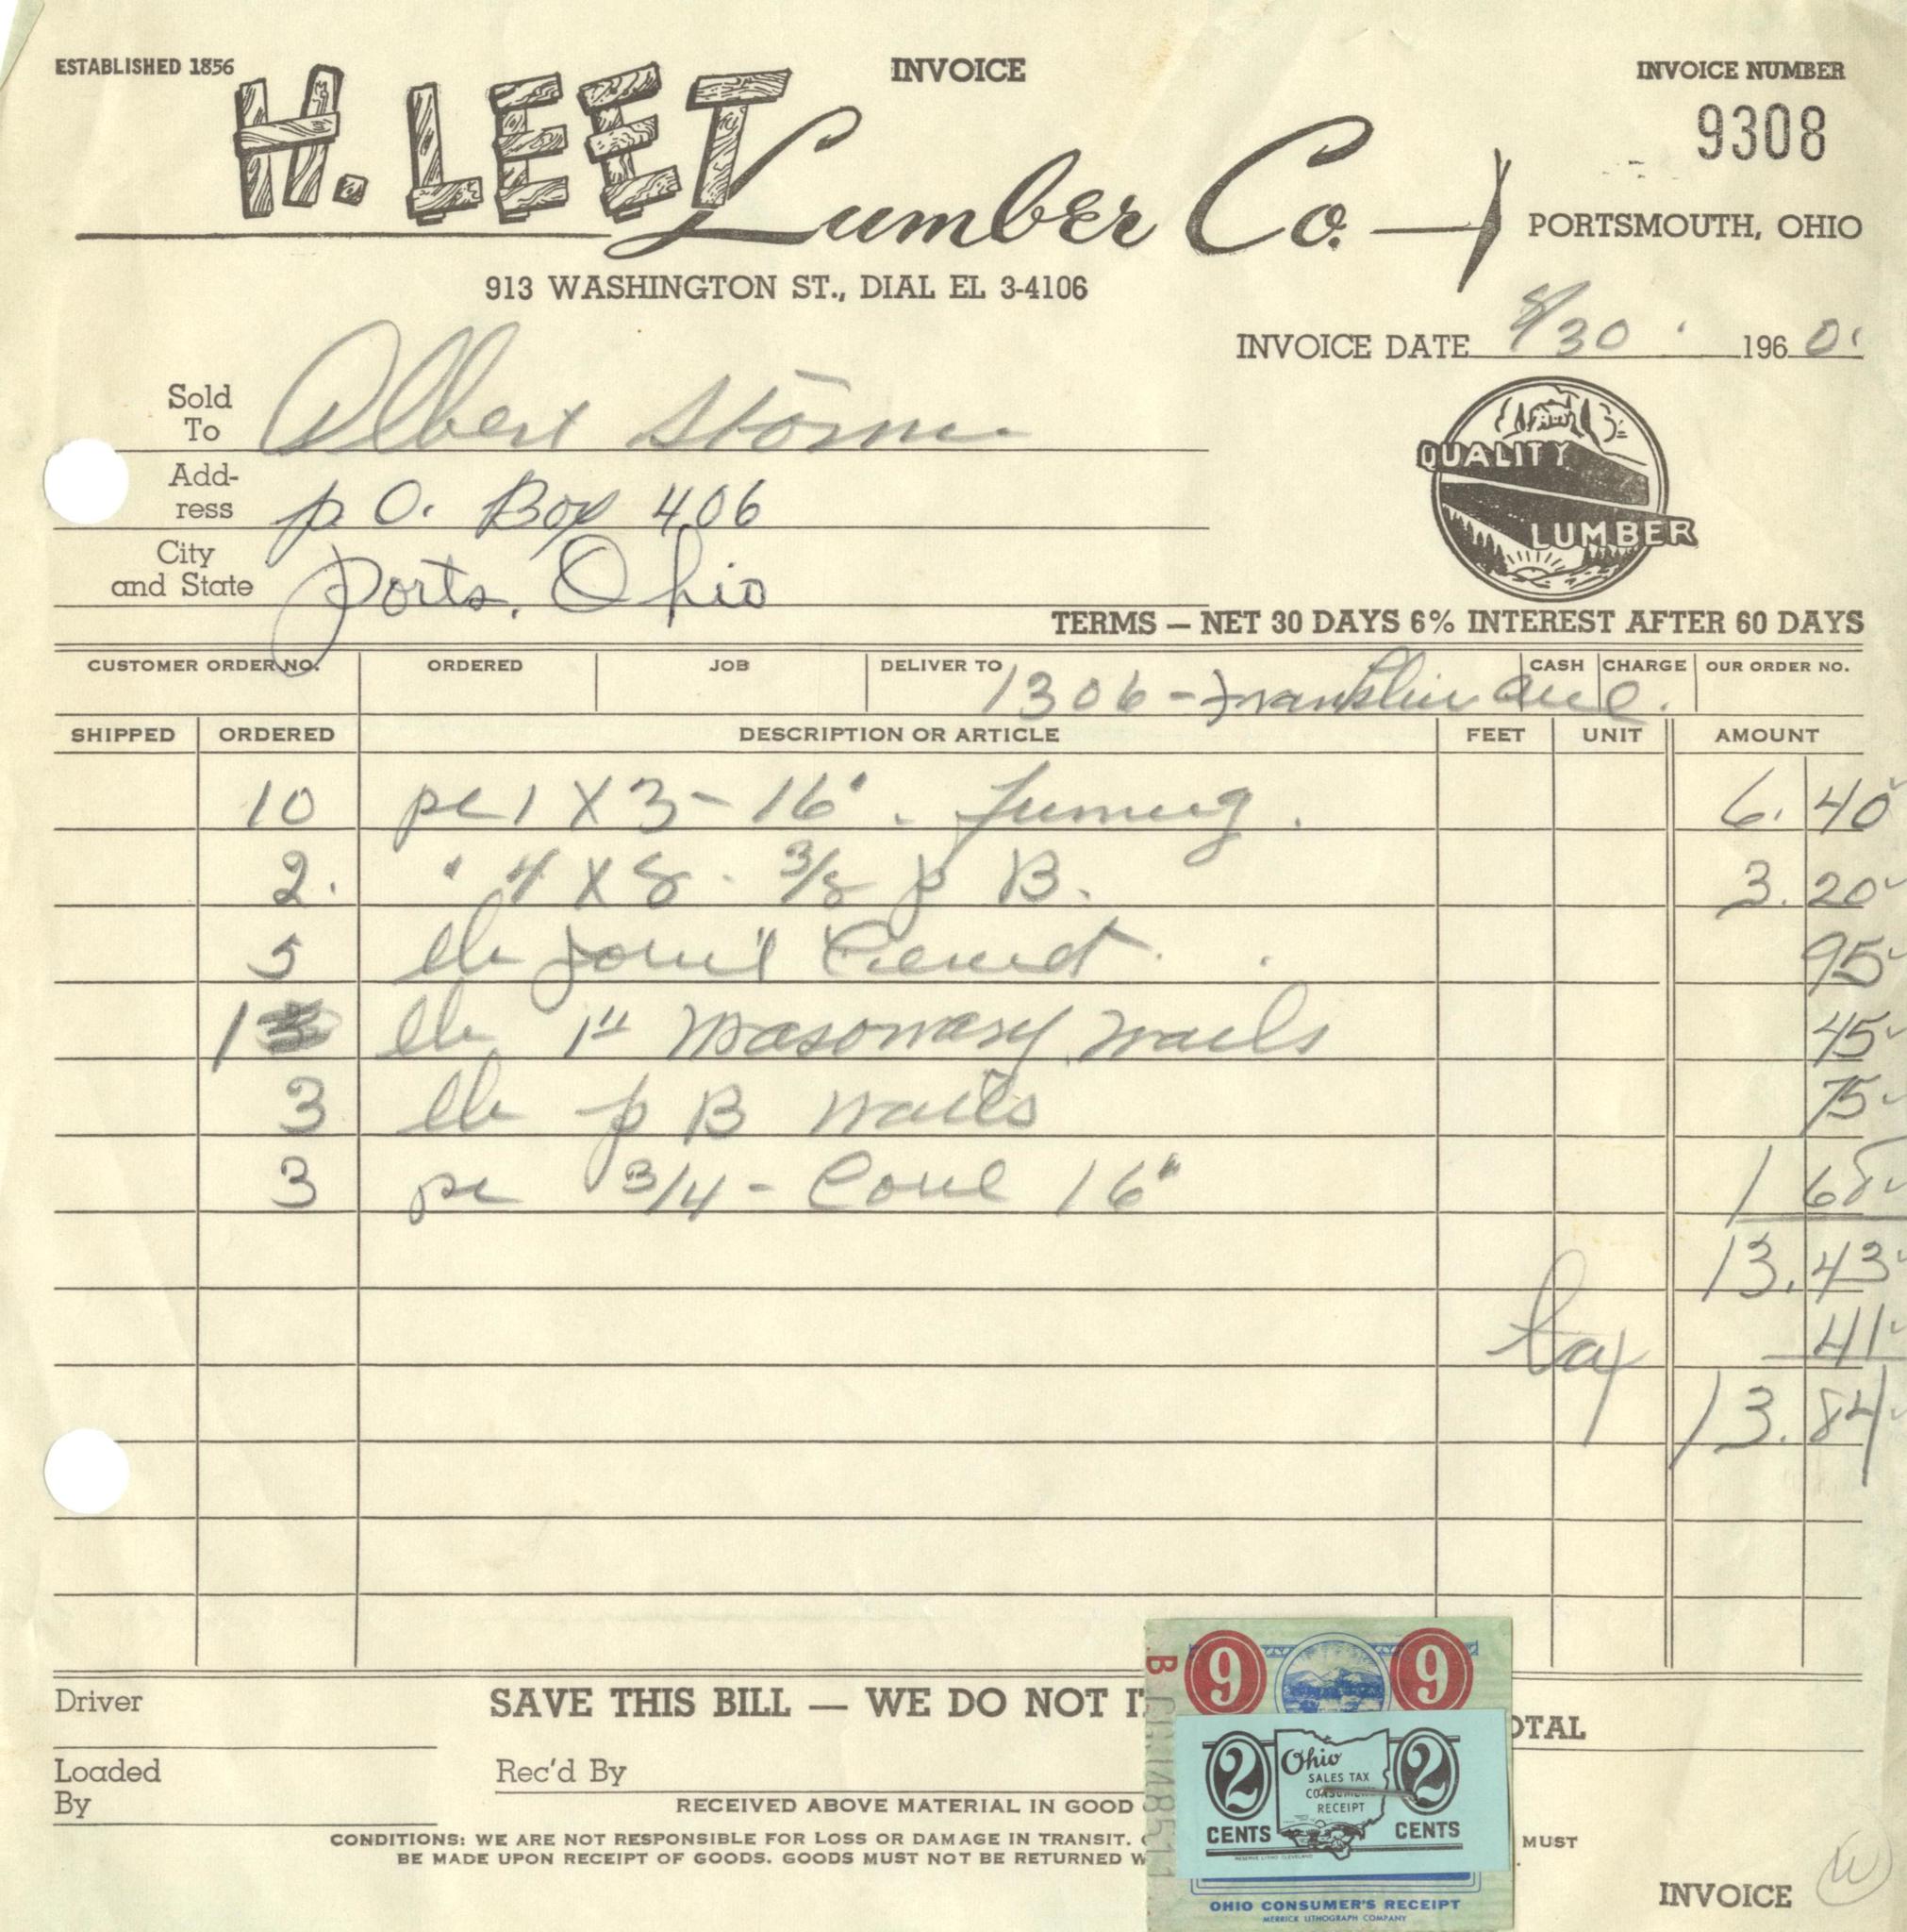 ESTABLISHED 1856
INVOICE
INVOICE NUMBER
H. LEET Lumber Co.
9308
PORTSMOUTH, OHIO
913 WASHINGTON ST., DIAL EL 3-4106
INVOICE DATE 8/30 1960
Sold To Albert Storm
Add-ress P.O. Box 406
City and State Ports, Ohio
QUALITY
LUMBER
TERMS — NET 30 DAYS 6% INTEREST AFTER 60 DAYS
CUSTOMER ORDER NO. ORDERED JOB DELIVER TO CASH CHARGE OUR ORDER NO.
1306 - Franklin Ave.
SHIPPED ORDERED DESCRIPTION OR ARTICLE FEET UNIT AMOUNT
10 pc 1 X 3 - 16' 6.40
2. " 4 X 8 - 3/8 p B. 3.20
5 lb Joint Cement 95
1 lb 1" Masonary nails 45
3 lb p B nails 75
3 pc 3/4 - Cove 16' 1 68
13.43
tax 41
13.84
Driver
SAVE THIS BILL — WE DO NOT
OTAL
Loaded By
Rec'd By
RECEIVED ABOVE MATERIAL IN GOOD
CONDITIONS: WE ARE NOT RESPONSIBLE FOR LOSS OR DAMAGE IN TRANSIT.
MUST
BE MADE UPON RECEIPT OF GOODS. GOODS MUST NOT BE RETURNED
INVOICE
W
B
9 9
2 2
Ohio
SALES TAX
CONSUMER'S
RECEIPT
CENTS CENTS
OHIO CONSUMER'S RECEIPT
MERRICK LITHOGRAPH COMPANY